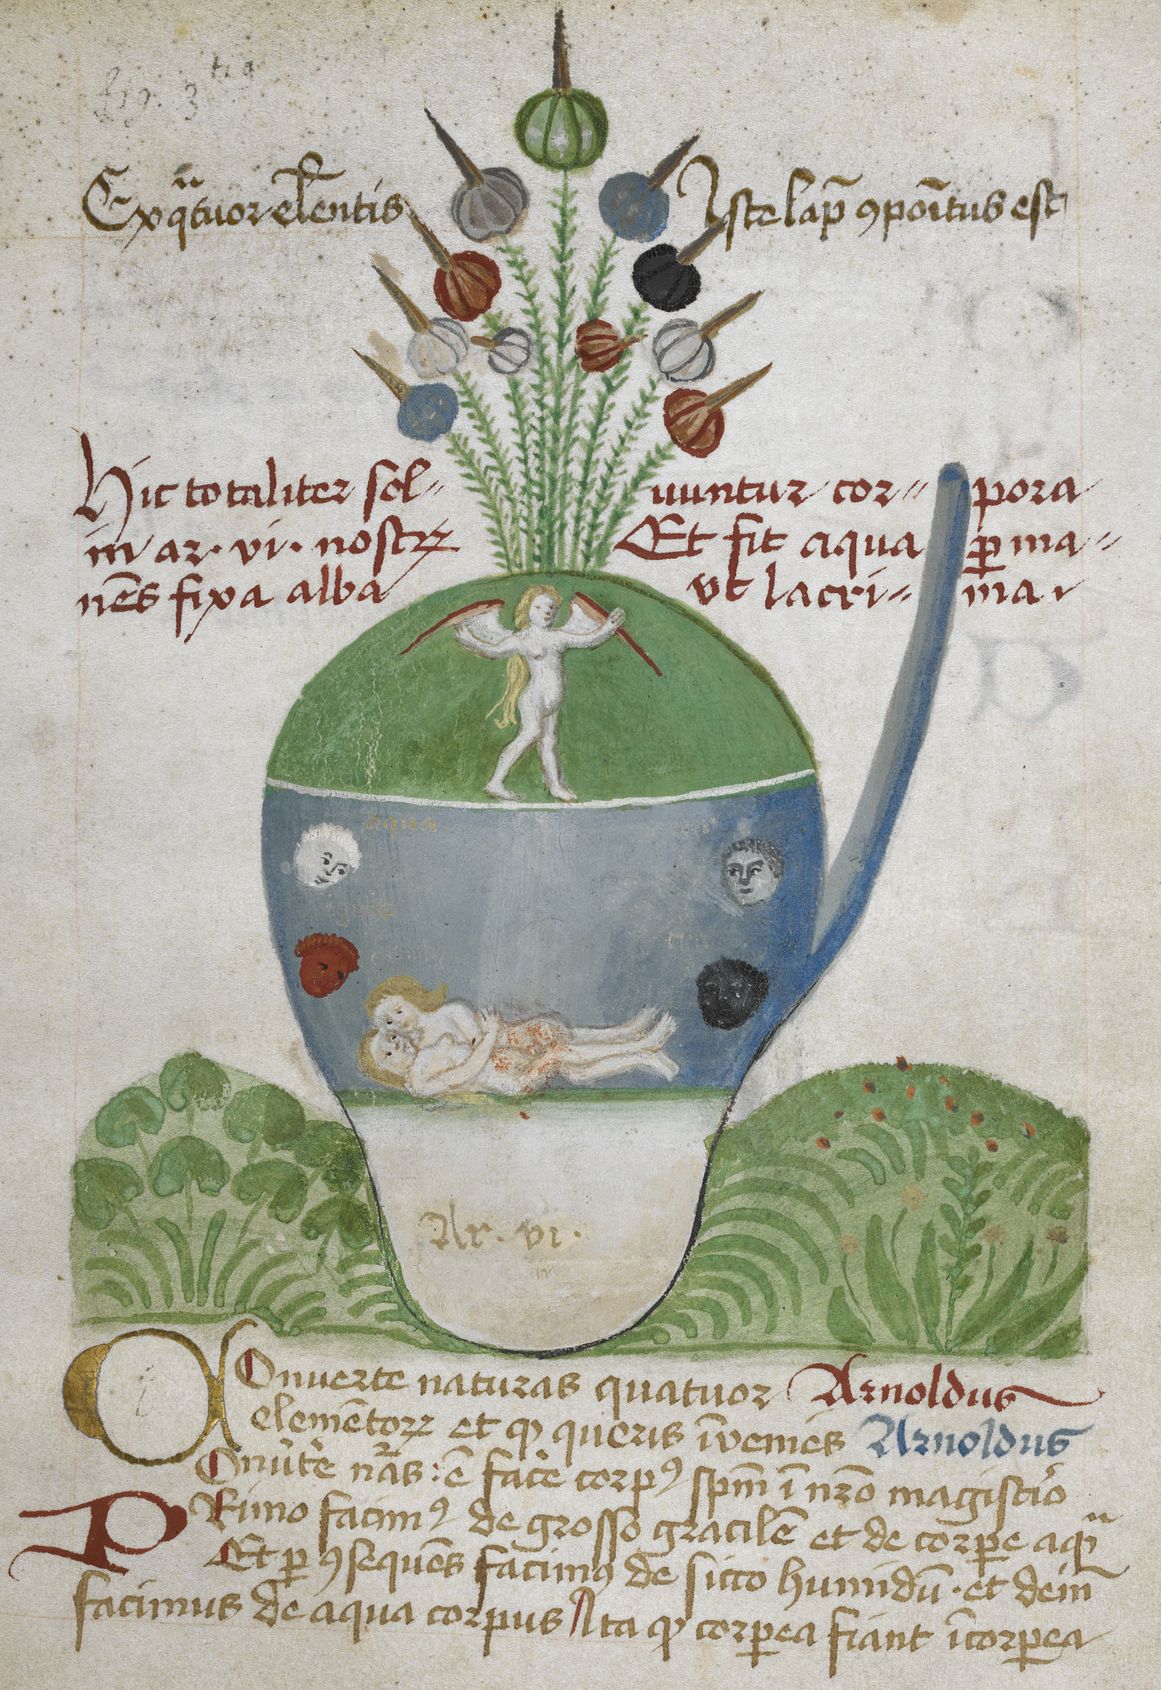 fig. 3
Ex q̃tuor elentis Iste lap̃ ꝯpoĩtus est
Hic totaliter sol〃 uuntur cor〃 pora
in ar. vi. nostrꝝ Et fit aqua ꝑma〃
nẽs fixa alba vt lacri〃 ma
Ar. vi.
COnuerte naturas quatuor Arnoldus
elemẽtoꝝ et ꝙ queris ĩvenies Arnoldus
Cõuẽte nãs: ẽ facẽ corpꝰ spm̃ ĩ nr̃o magistĩo
PRimo facimꝰ de grosso gracilẽ et de corꝑe aqũ
Et ꝑ ꝯsequẽs facimꝰ de sicco humidũ. et dein̄
facimus de aqua corpus Ita ꝙ corꝑea fiant ĩcorꝑea